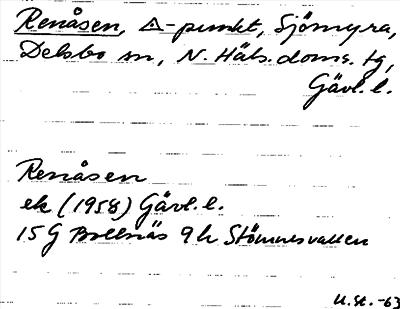 Renåsen, △-punkt, Sjömyra,
Delsbo sn, N. Häls. doms. tg,
Gävl. l.
Renåsen
ek (1958) Gävl. l.
15 G Bollnäs 9 h Stömnesvallen
U. St. -63